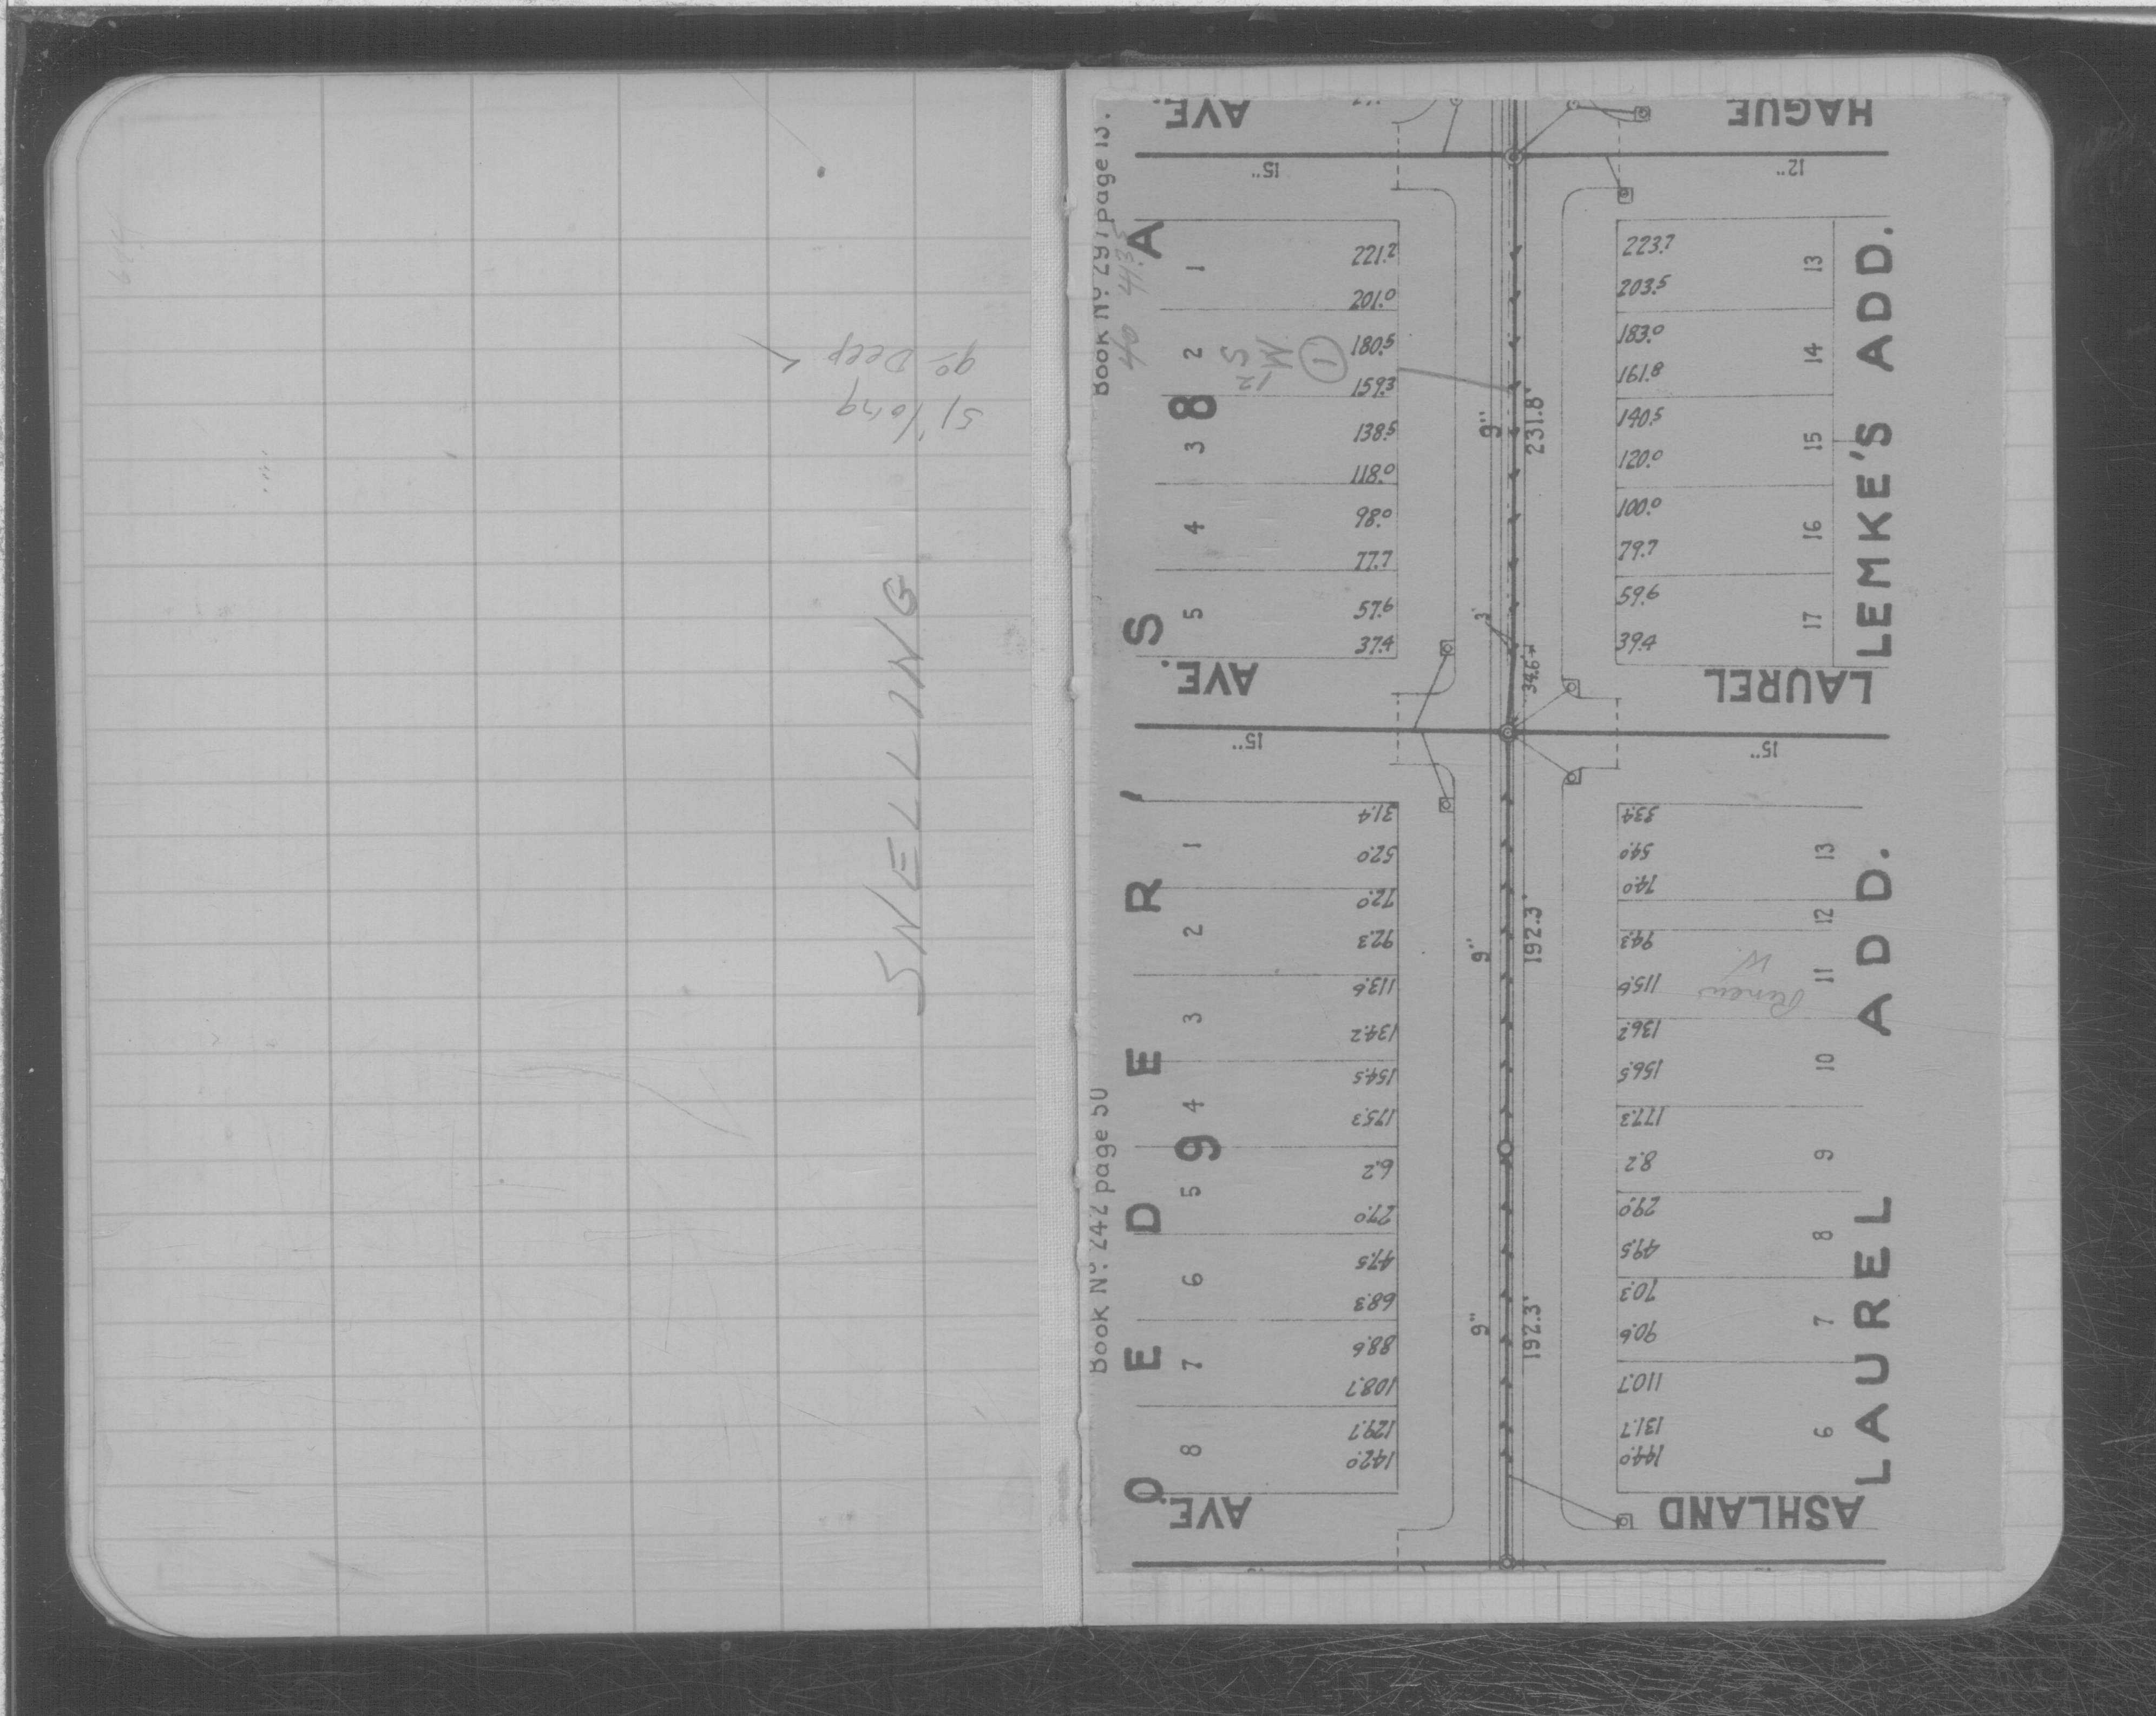 9° Deep
51' long
SNELLING
Book Nº. 291 page 13.
Book Nº. 242 page 50
AVE.
HAGUE
15"
12"
A
1
221.2
201.0
2
180.5
159.3
1
W
8
3
138.5
118.0
4
98.0
77.7
5
57.6
37.4
S
9"
231.8'
3'
34.6'
223.7
203.5
13
183.0
161.8
14
140.5
120.0
15
100.0
79.7
16
59.6
39.4
17
LEMKE'S ADD.
AVE.
LAUREL
15"
15"
'
1
31.4
52.0
R
2
72.0
92.3
3
113.6
134.2
E
4
154.5
175.3
9
5
6.2
27.0
D
6
47.5
68.3
E
7
88.6
108.7
8
129.7
142.0
O
9"
192.3'
9"
192.3'
33.4
54.0
13
74.0
12
94.3
115.6
11
W
136.2
156.5
10
177.3
8.2
9
29.0
49.5
8
70.3
90.6
7
110.7
131.7
144.0
6
LAUREL ADD.
AVE.
ASHLAND